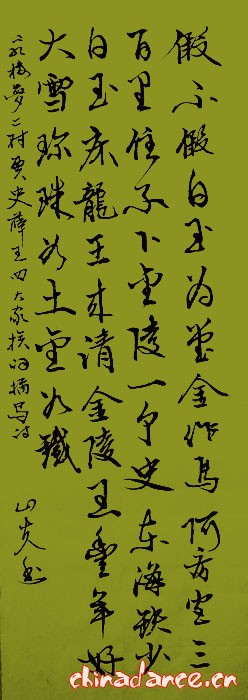 假不假白玉为堂金作马阿房宫三
百里住不下金陵一个史东海缺少
白玉床龍王来请金陵王豐年好
大雪珍珠如土金如鐵
梦 贾史薛王四大家族
chinadance.cn